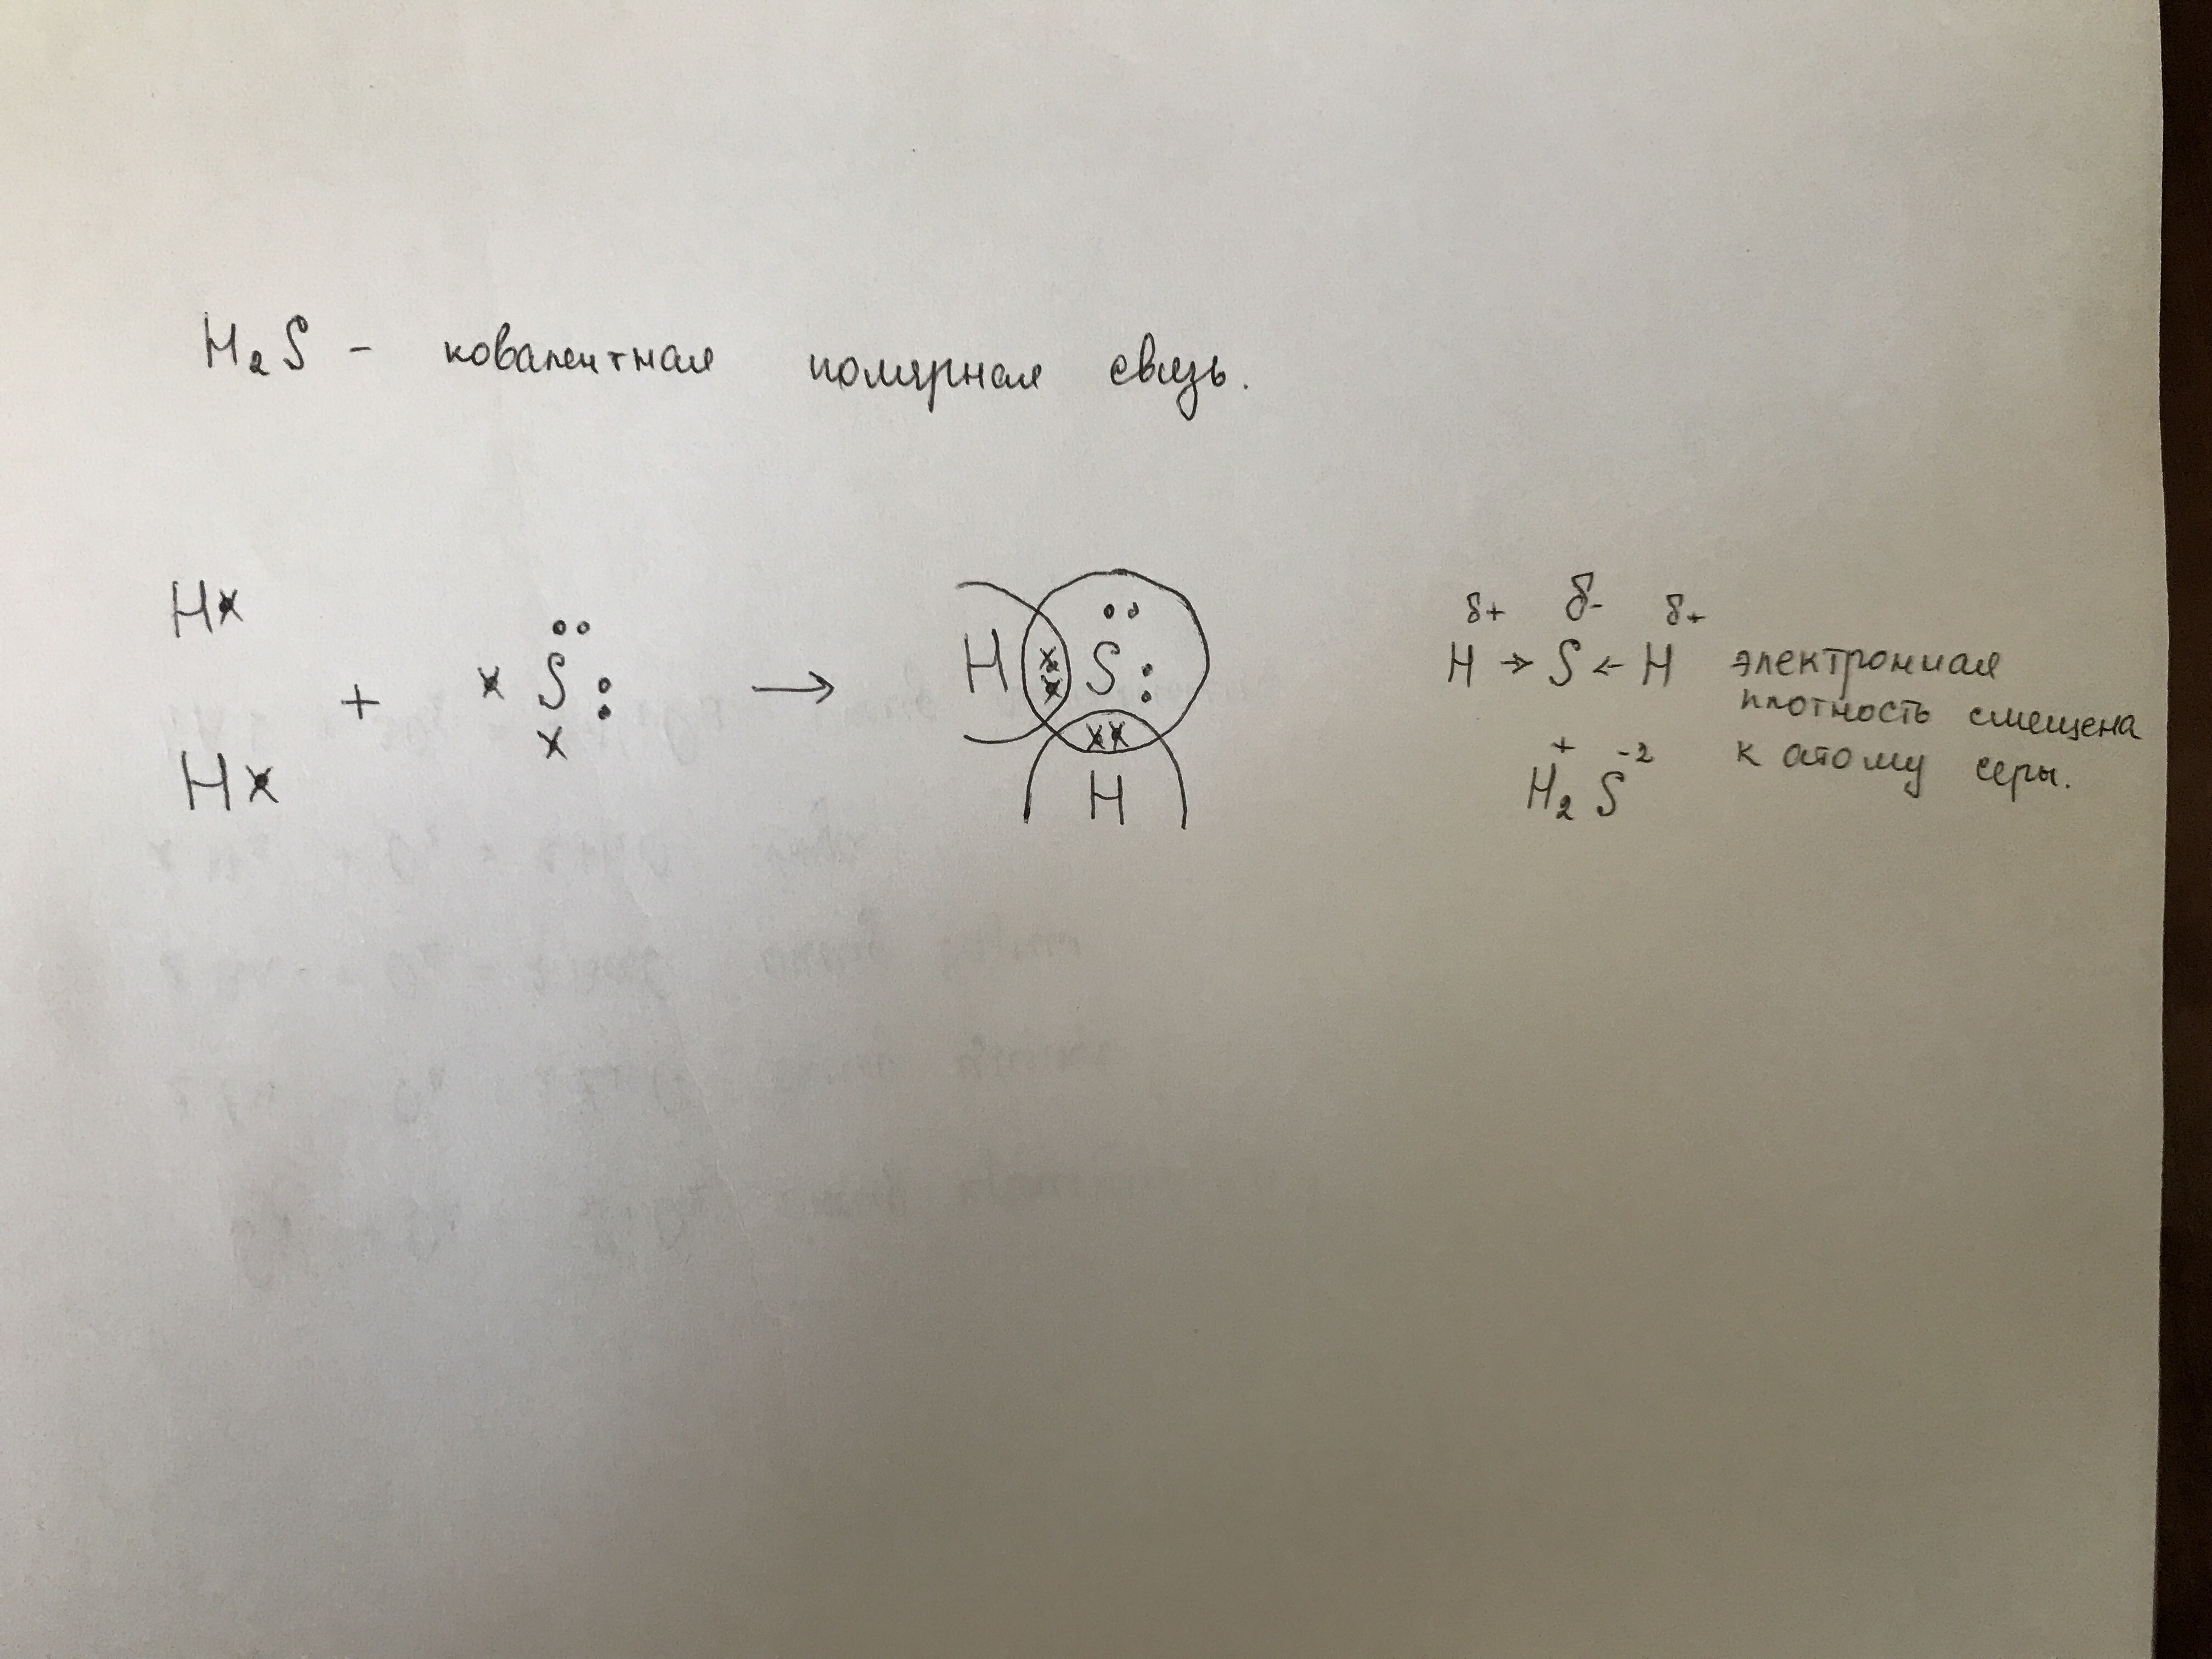 H₂S - ковалентная полярная связь.
Hx
+
x S x
→
H xx S xx H
Hx
δ+ δ- δ+
H → S ← H электронная
плотность смещена
к атому серы.
+ -2
H₂ S